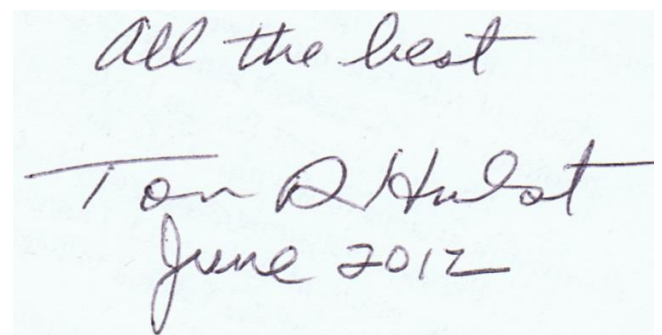 All the best
Tom R Hulst
June 2012